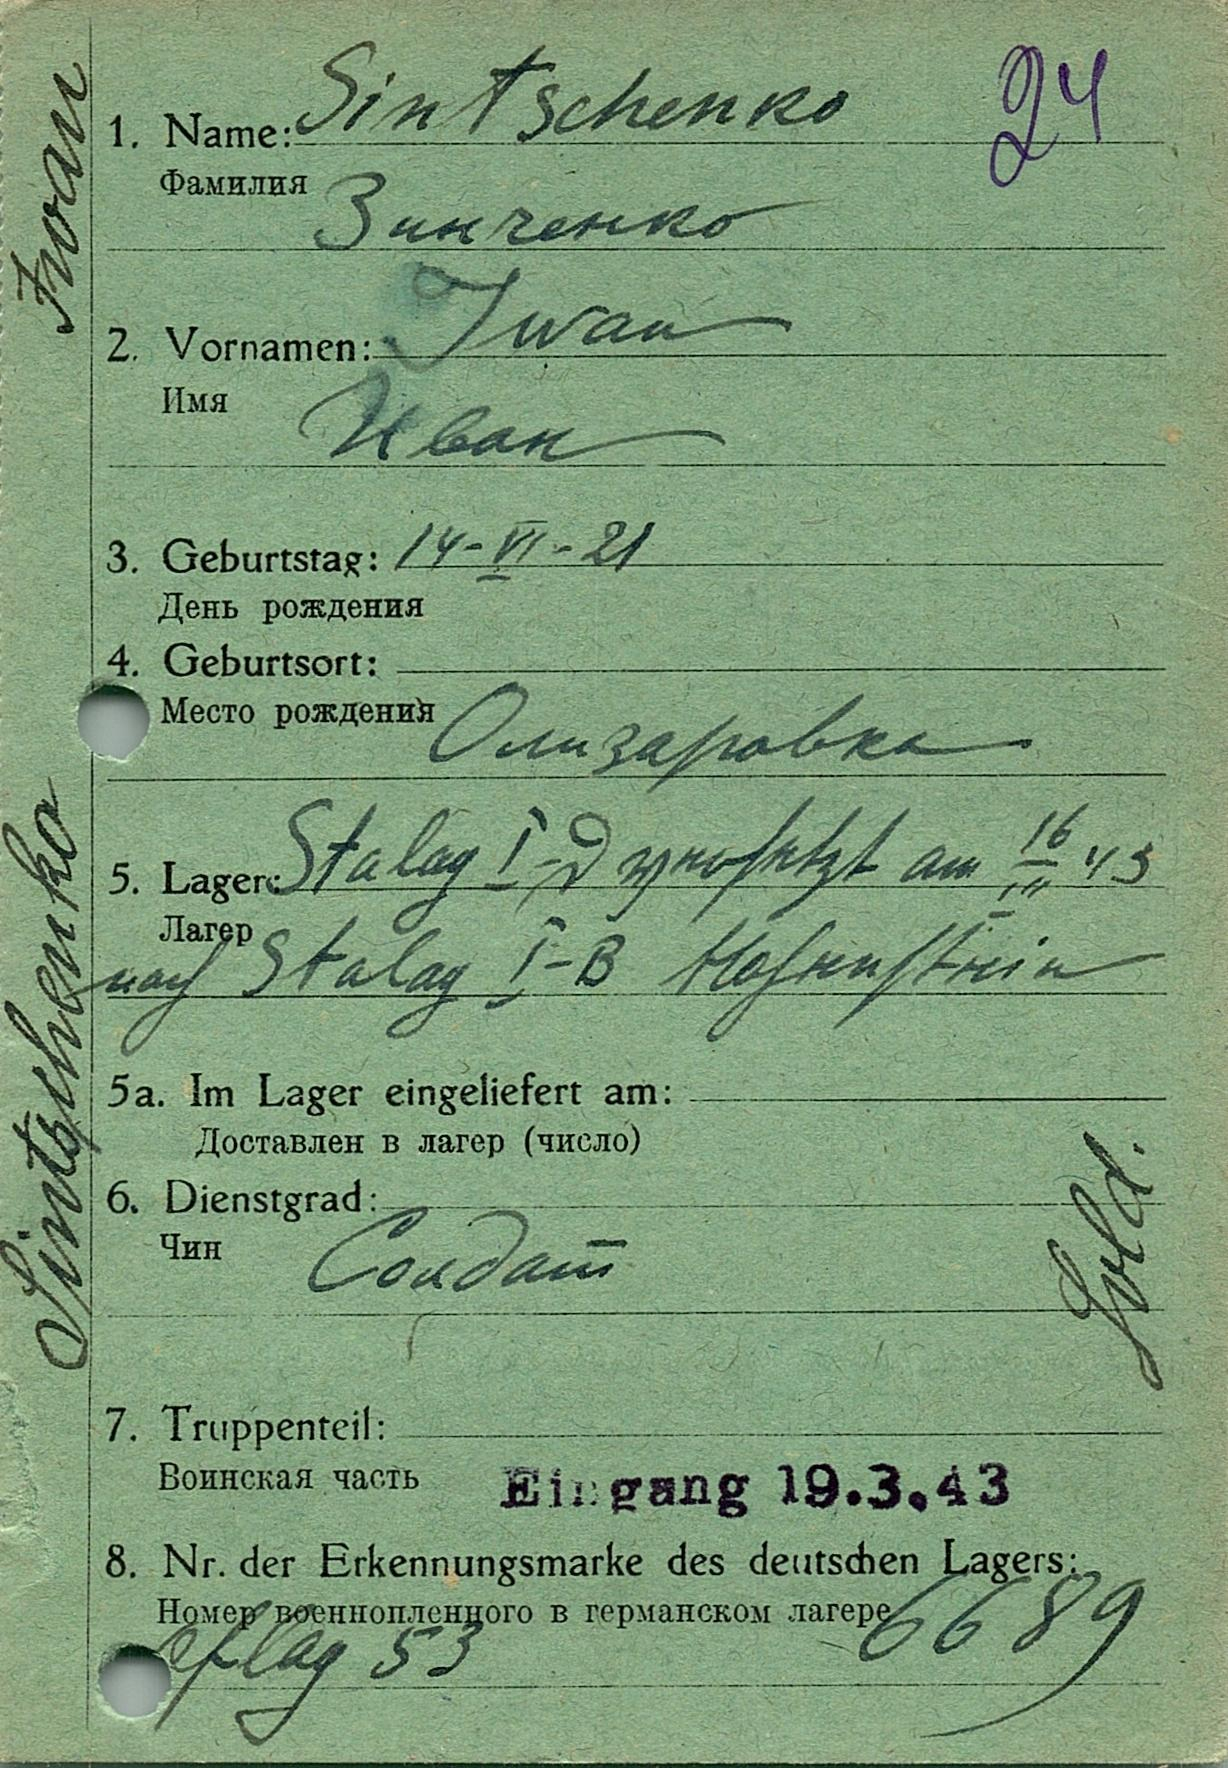 24
1. Name: Sintschenko
Фамилия
Зинченко
2. Vornamen: Iwan
Имя
Иван
3. Geburtstag: 14-VI-21
День рождения
4. Geburtsort:
Место рождения
Олизаровка
5. Lager: Stalag I-D am 16/III 43
Лагер
nach Stalag I-B Hohenstein
5a. Im Lager eingeliefert am:
Доставлен в лагер (число)
6. Dienstgrad:
Чин
Солдат
Sold.
7. Truppenteil:
Воинская часть
Eingang 19.3.43
8. Nr. der Erkennungsmarke des deutschen Lagers:
Номер военнопленного в германском лагере
Oflag 53 6689
Sintschenko Iwan